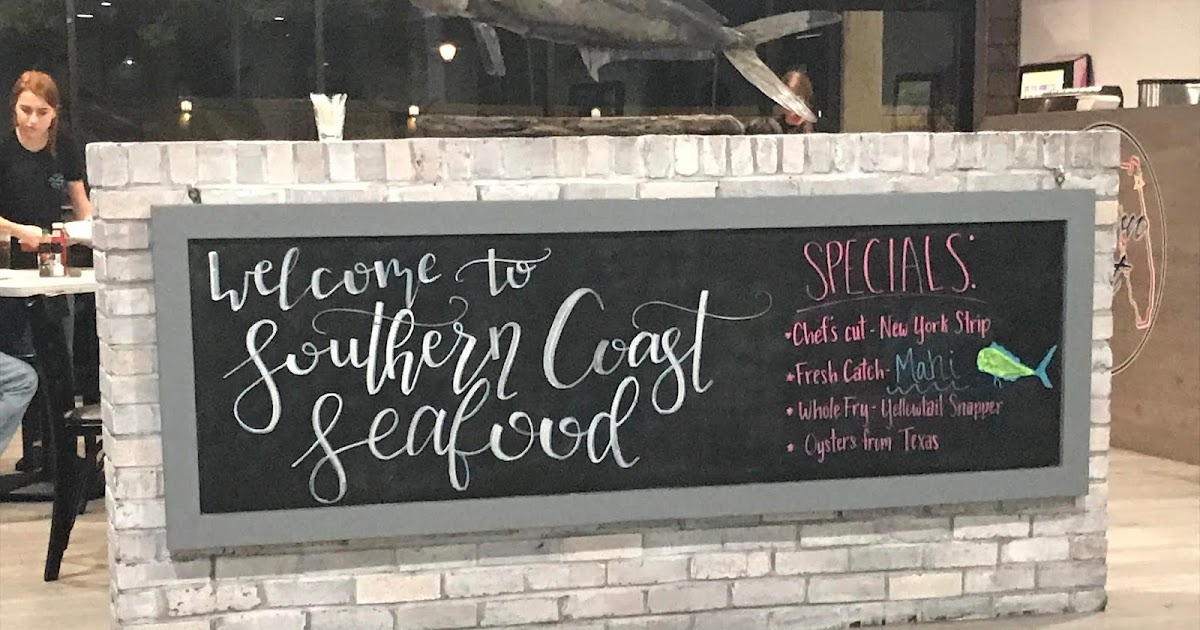 Welcome to
Southern Coast
Seafood
SPECIALS:
*Chef's cut - New York Strip
*Fresh Catch - Mahi
*Whole Fry - Yellowtail Snapper
* Oysters from Texas